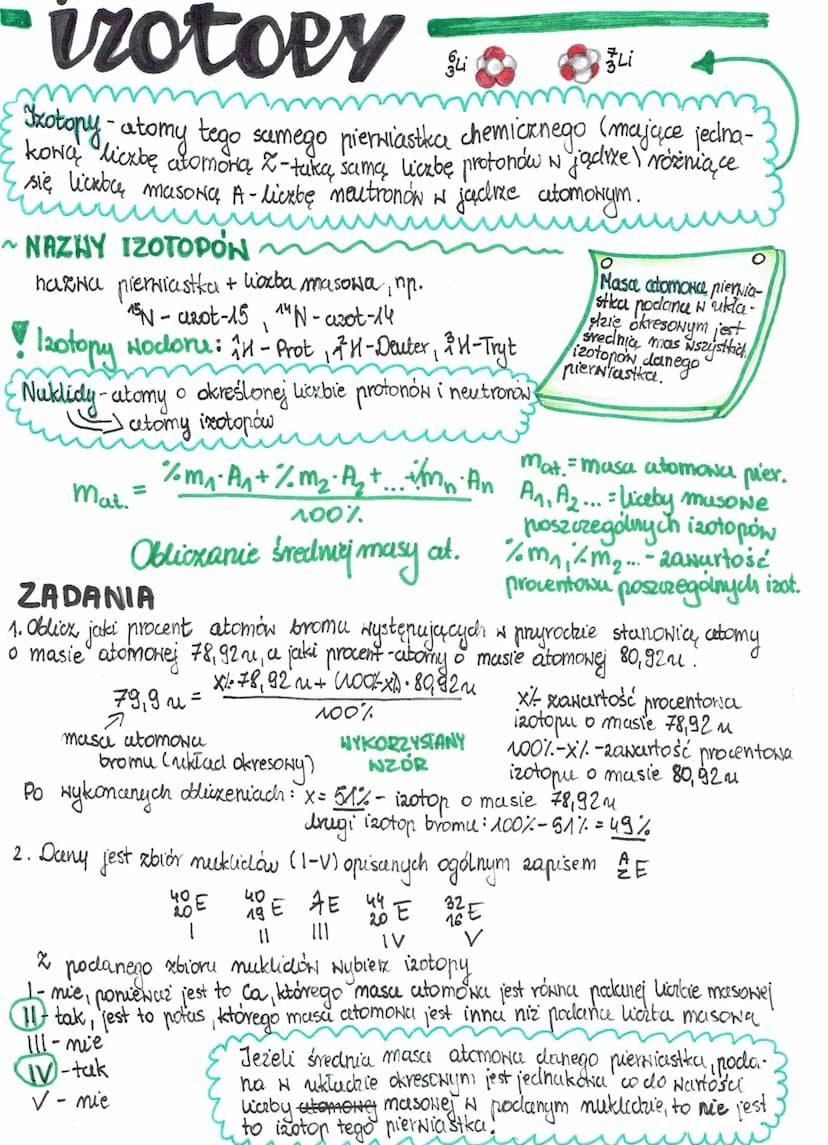 izotopy
⁶₃Li ⁷₃Li
Izotopy - atomy tego samego pierwiastka chemicznego (mające jedna-
kową liczbę atomową Z - taką samą liczbę protonów w jądrze) różniące
się liczbą masową A - liczbę neutronów w jądrze atomowym.
~ NAZWY IZOTOPÓW
nazwa pierwiastka + liczba masowa, np.
¹⁵N - azot-15, ¹⁴N - azot-14
! Izotopy wodoru: ¹₁H - Prot, ²₁H - Deuter, ³₁H - Tryt
Masa atomowa pierwia-
stka podana w ukła-
dzie okresowym jest
średnią mas wszystkich
izotopów danego
pierwiastka.
Nuklidy - atomy o określonej liczbie protonów i neutronów
atomy izotopów
mat. = %m₁·A₁ + %m₂·A₂ + ... + %mₙ·Aₙ
100%
Obliczanie średniej masy at.
mat. = masa atomowa pier.
A₁, A₂ ... = liczby masowe
poszczególnych izotopów
%m₁, %m₂ ... - zawartość
procentowa poszczególnych izot.
ZADANIA
1. Oblicz jaki procent atomów bromu występujących w przyrodzie stanowią atomy
o masie atomowej 78,92u, a jaki procent - atomy o masie atomowej 80,92u.
79,9u = x%·78,92u + (100%-x%)·80,92u
100%
masa atomowa
bromu (układ okresowy)
WYKORZYSTANY
WZÓR
x% - zawartość procentowa
izotopu o masie 78,92u
100%-x% - zawartość procentowa
izotopu o masie 80,92u
Po wykonanych obliczeniach: x = 51% - izotop o masie 78,92u
drugi izotop bromu: 100% - 51% = 49%
2. Dany jest zbiór nuklidów (I-V) opisanych ogólnym zapisem ᴬ_Z E
⁴⁰₂₀E ⁴⁰₁₉E E ⁴⁴₂₀E ³²₁₆E
I II III IV V
Z podanego zbioru nuklidów wybierz izotopy
I - nie, ponieważ jest to Ca, którego masa atomowa jest równa podanej liczbie masowej
II - tak, jest to potas, którego masa atomowa jest inna niż podana liczba masowa
III - nie
IV - tak
V - nie
Jeżeli średnia masa atomowa danego pierwiastka, poda-
na w układzie okresowym jest jednakowa co do wartości
liczby atomowej masowej w podanym nuklidzie, to nie jest
to izotop tego pierwiastka.